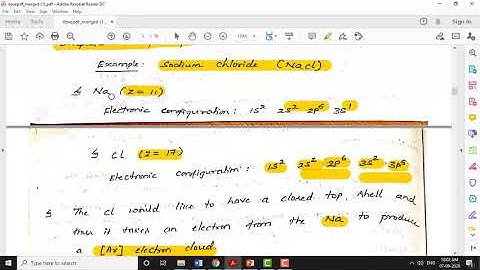 ilovepdf_merged (1).pdf - Adobe Acrobat Reader DC
File Edit View Window Help
Home Tools
Sign In
Share
Example: Sodium chloride (NaCl)
↳ Na (Z = 11)
Electronic configuration: 1s² 2s² 2p⁶ 3s¹
↳ Cl (Z = 17)
Electronic configuration: 1s² 2s² 2p⁶ 3s² 3p⁵
↳ The Cl would like to have a closed top shell and
thus it takes an electron from the Na to produce
a [Ar] electron cloud.
Type here to search
ENG
07-09-2020